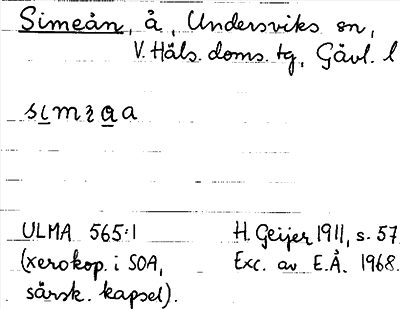 Simeån, å, Undersviks sn,
V. Häls. doms. tg, Gävl. l
ULMA 565:1
(xerokop. i SOA,
särsk. kapsel).
H. Geijer 1911, s. 57
Exc. av E.Å. 1968.